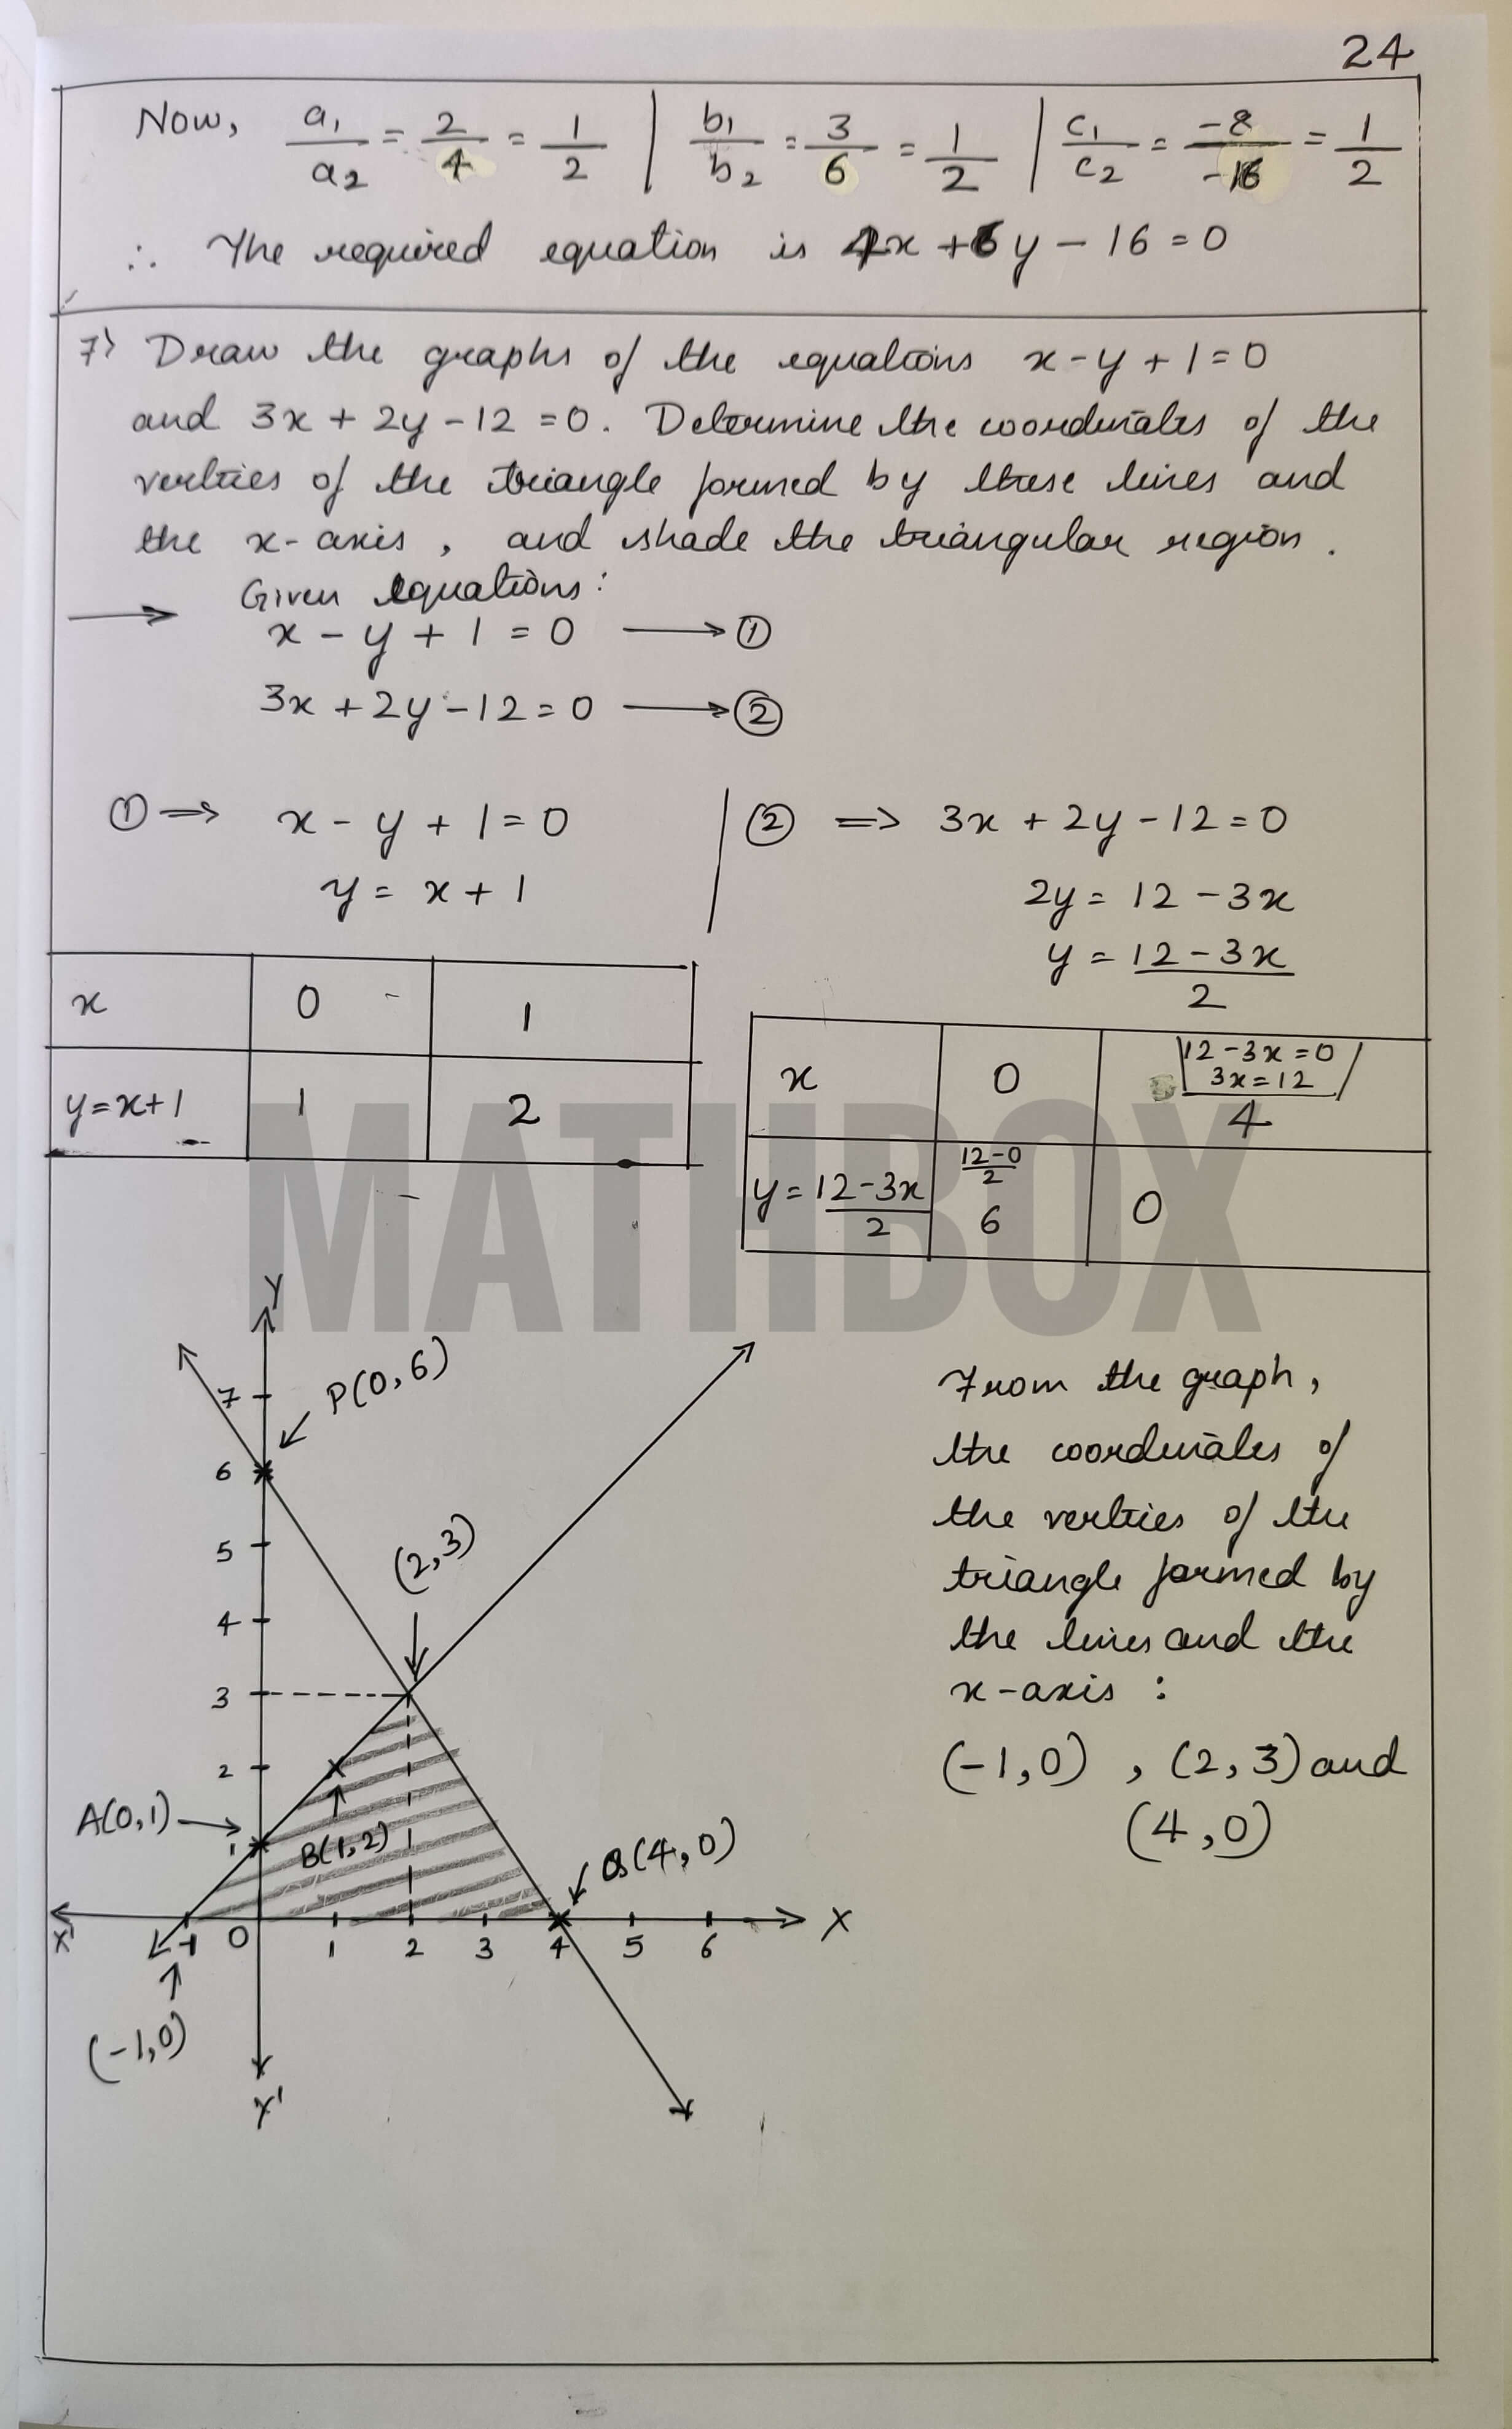 24
Now, a₁/a₂ = 2/4 = 1/2 | b₁/b₂ = 3/6 = 1/2 | c₁/c₂ = -8/-16 = 1/2
∴ The required equation is 4x + 6y - 16 = 0
7) Draw the graphs of the equations x - y + 1 = 0
and 3x + 2y - 12 = 0. Determine the coordinates of the
verties of the triangle formed by these lines and
the x-axis, and shade the triangular region.
Given equations:
x - y + 1 = 0 → ①
3x + 2y - 12 = 0 → ②
① ⇒ x - y + 1 = 0 | ② ⇒ 3x + 2y - 12 = 0
y = x + 1
2y = 12 - 3x
y = (12 - 3x)/2
x 0 1
y = x+1 1 2
x 0 12-3x=0 3x=12 4
y = (12-3x)/2 (12-0)/2 6 0
MATHBOX
Y
7
P(0,6)
6
5
(2,3)
4
3
2
A(0,1)
1
B(1,2)
Q(4,0)
X' -1 0 1 2 3 4 5 6 X
(-1,0)
Y'
From the graph,
the coordinates of
the verties of the
triangle formed by
the lines and the
x-axis :
(-1,0) , (2,3) and
(4,0)